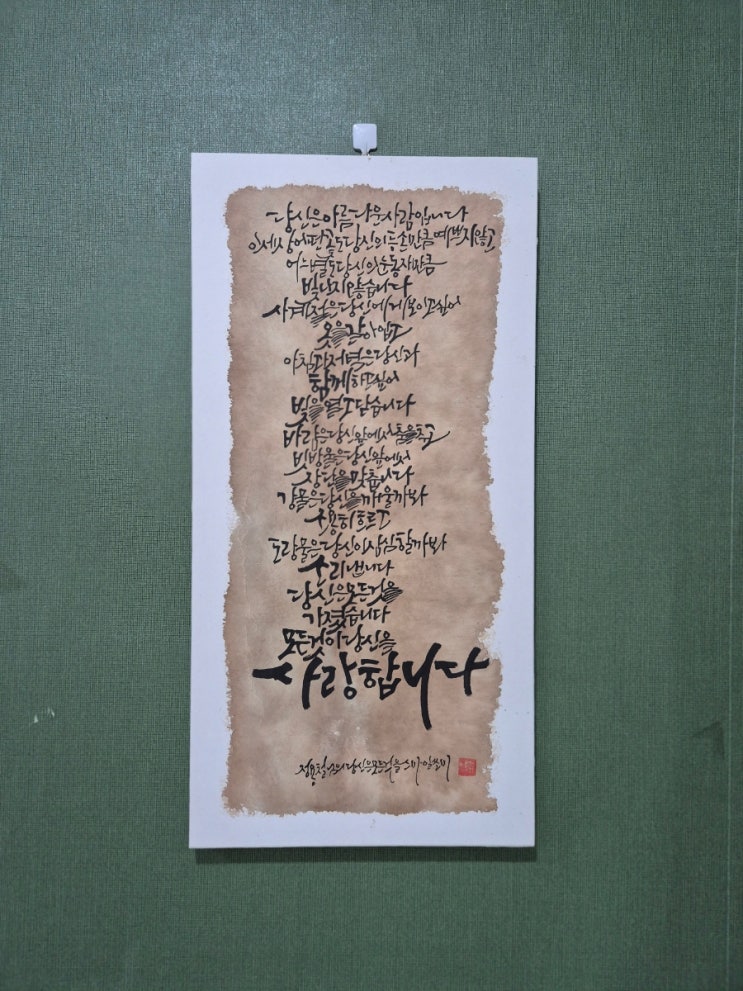 당신은 아름다운 사람입니다
이 세상 어떤 꽃도 당신의 등 손만큼 예쁘지 않고
어느 별도 당신의 눈동자만큼
빛나지 않습니다
사계절은 당신에게 보이고 싶어
옷을 갈아입고
아침과 저녁은 당신과
함께 하고 싶어
빛을 열고 닫습니다
바람은 당신 앞에서 춤을 추고
빗방울은 당신 앞에서
장단을 맞춥니다
강물은 당신을 깨울까봐
조용히 흐르고
도랑물은 당신이 심심할까봐
소리 냅니다
당신은 모든 것을
가졌습니다
모든 것이 당신을
사랑합니다
정용철님의 당신은 모든 것을